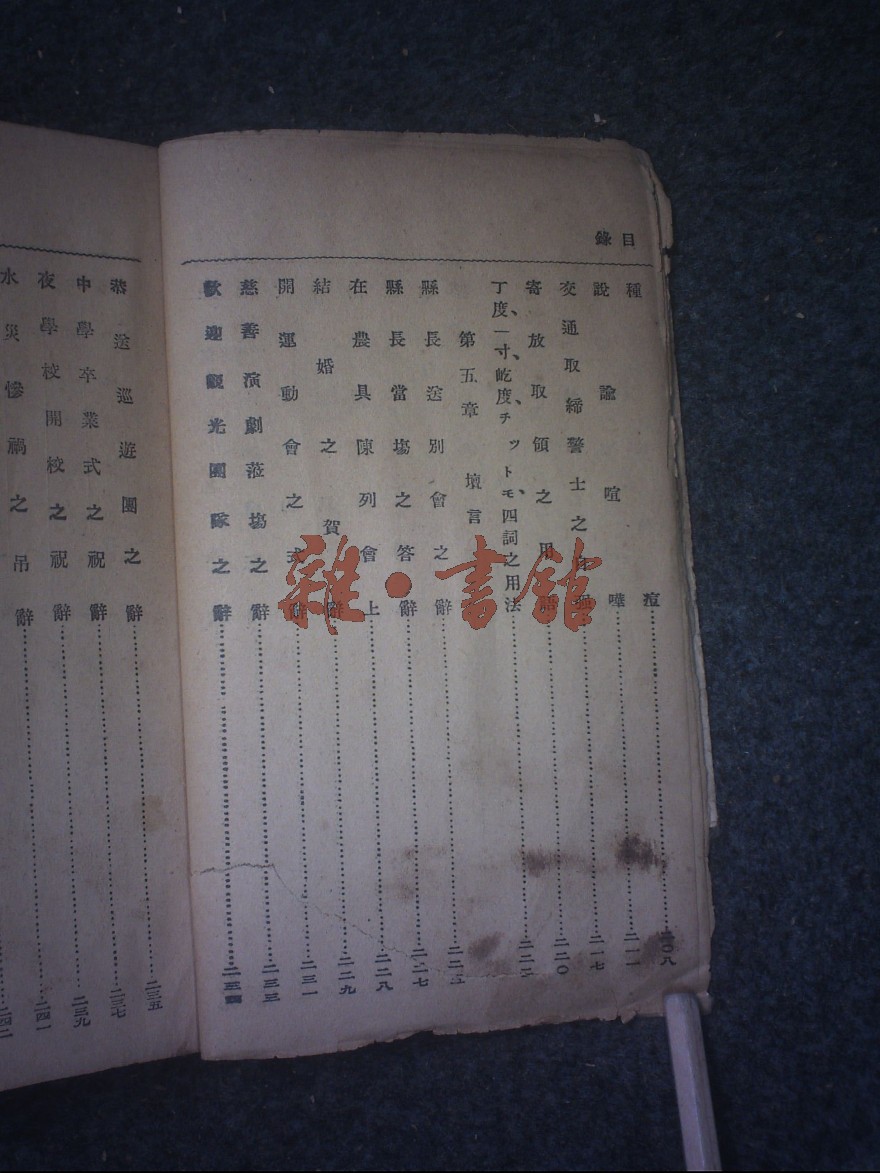 目錄
種痘……二〇八
說諭喧嘩……二一一
交通取締警士之……二一七
寄放取領之用語……二二〇
丁度、一寸、屹度、チットモ、四詞之用法……二二
第五章 壇言
縣長送別會之辭……二二五
縣長當場之答辭……二二七
在農具陳列會上……二二八
結婚之賀辭……二二九
開運動會之式辭……二三一
慈善演劇蒞場之辭……二三三
歡迎觀光團隊之辭……二三四
恭送巡遊團之辭……二三五
中學卒業式之祝辭……二三七
夜學校開校之祝辭……二三九
水災慘禍之吊辭……二四一
二四二
雜·書館